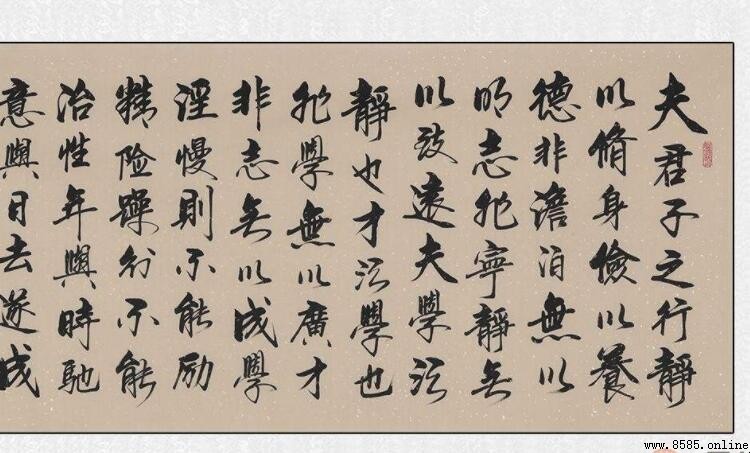 夫君子之行靜
以脩身儉以養
德非澹泊無以
明志非寧靜无
以致遠夫學须
靜也才须學也
非學無以廣才
非志无以成學
淫慢則不能励
精险躁则不能
治性年與時馳
意與日去遂成
www.8585.online